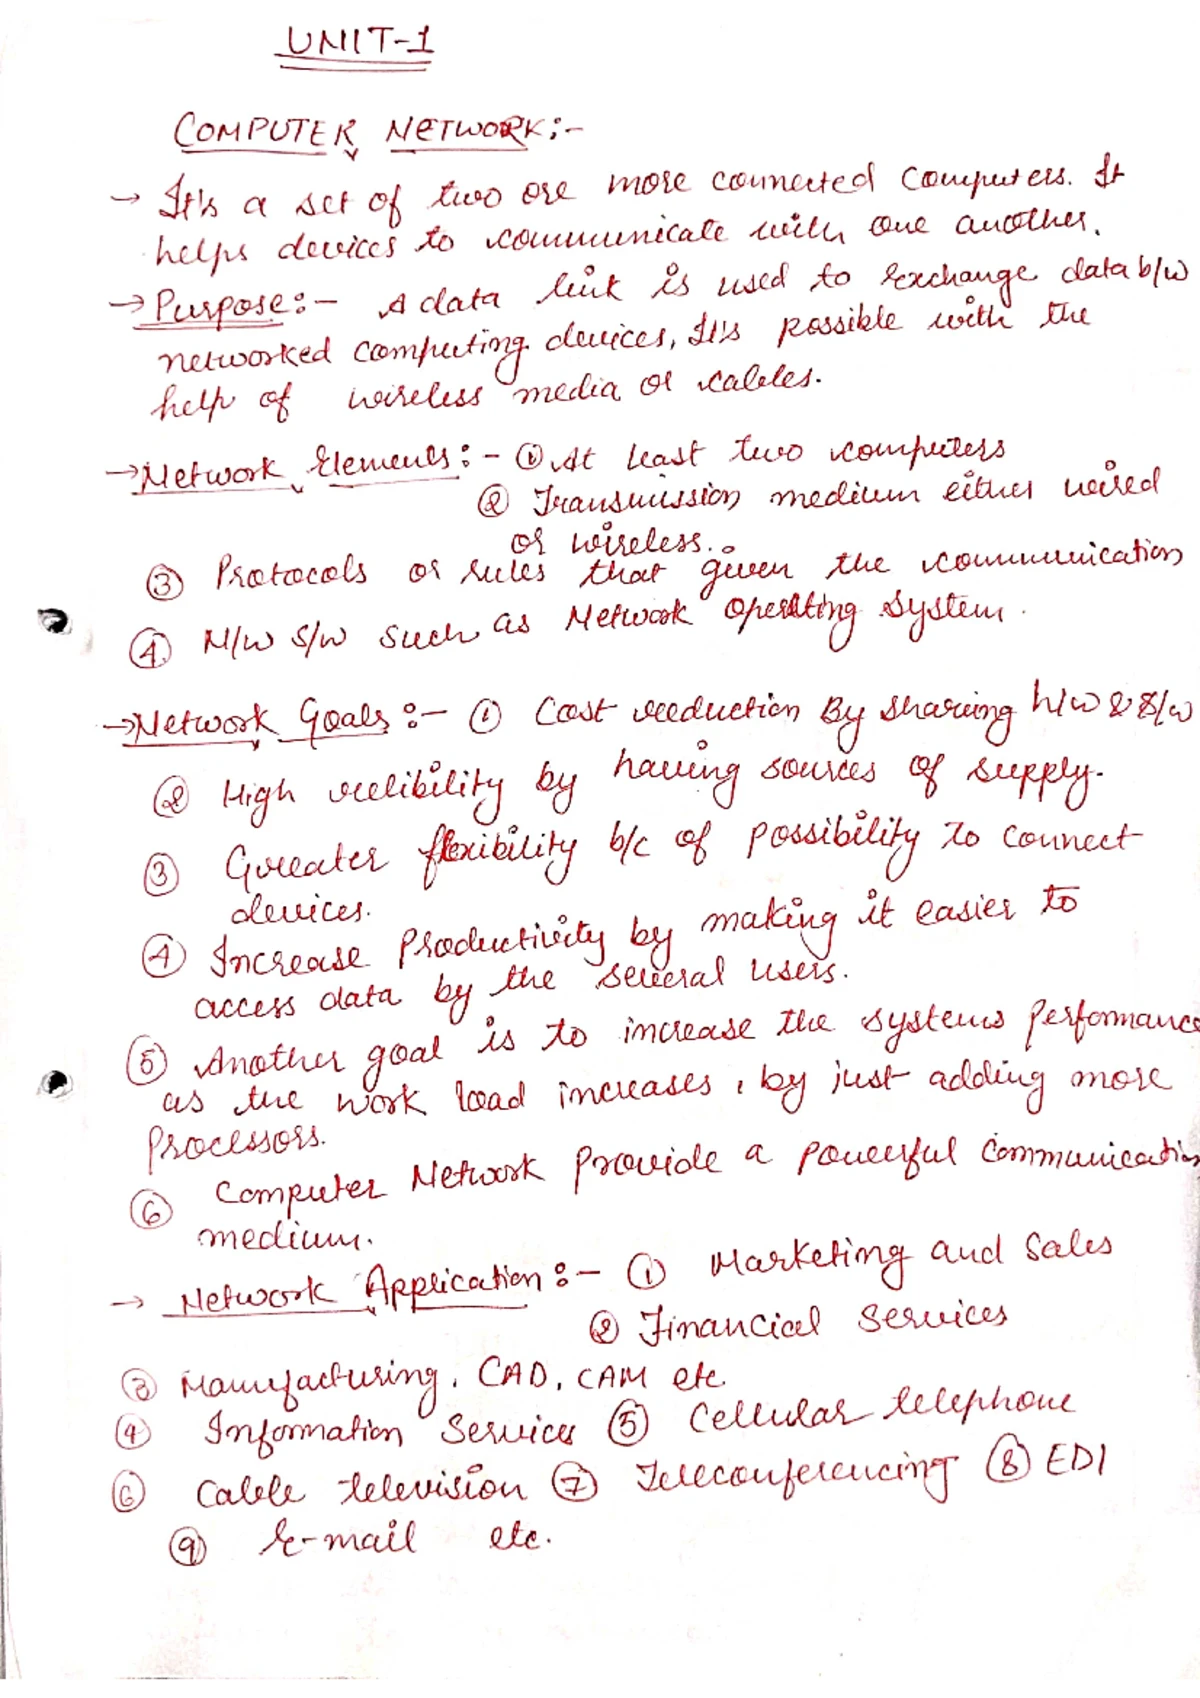 UNIT-1
COMPUTER NETWORK:-
→ It's a set of two ore more connected Computers. It
helps devices to communicate with one another.
→ Purpose:- A data link is used to exchange data b/w
networked computing devices, It's possible with the
help of wireless media or cables.
→ Network Elements:- ① At least two computers
② Transmission medium either wired
or wireless.
③ Protocols or rules that given the communication
④ N/W S/W such as Network Operating System.
→ Network Goals:- ① Cost reeduction By sharing h/w & S/w
② High relibility by having sources of supply.
③ Greater flexibility b/c of possibility to connect
devices.
④ Increase Productivity by making it easier to
access data by the several users.
⑤ Another goal is to increase the systems Performance
as the work load increases, by just adding more
Processors.
⑥ Computer Network Provide a powerful Communication
medium.
→ Network Application:- ① Marketing and Sales
② Financial Services
③ Manufacturing, CAD, CAM etc
④ Information Services ⑤ Cellular telephone
⑥ Cable television ⑦ Teleconferencing ⑧ EDI
⑨ E-mail etc.